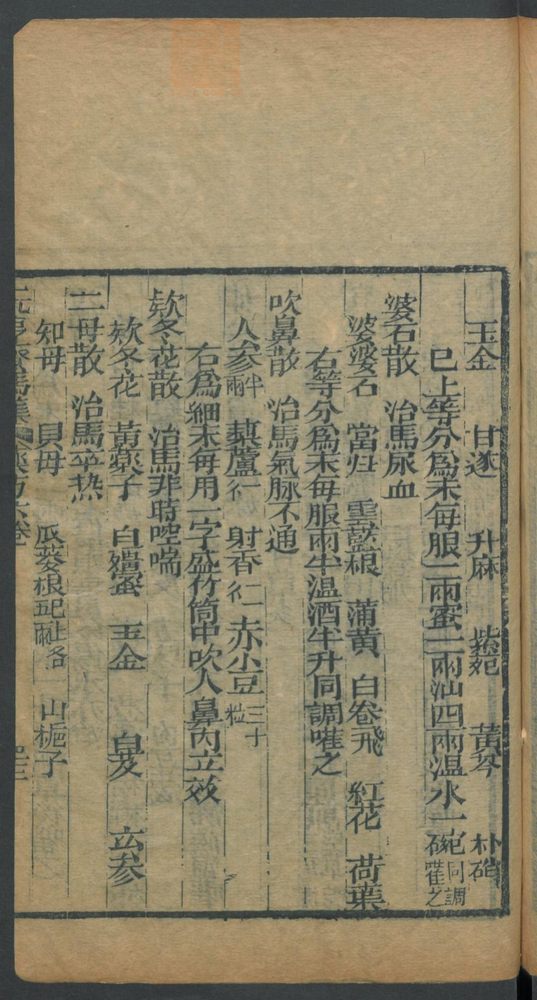 玉金 甘遂 升麻 紫菀 黃芩 朴硝
已上等分爲末每服二兩蜜二兩油四兩溫水一碗同調灌之
婆石散 治馬尿血
婆婆石 當归 藍根 蒲黄 白卷飛 紅花 荷葉
右等分爲末每服兩半溫酒半升同調嚾之
吹鼻散 治馬氣脉不通
人參半兩 藜蘆 射香 赤小豆三十粒
右爲細末每用一字盛竹筒中吹入鼻内立效
欵冬花散 治馬非時啌喘
欵冬花 黄藥子 白殭蚕 玉金 白芨 玄参
二母散 治馬卒热
知母 貝母 瓜蔞根 山梔子